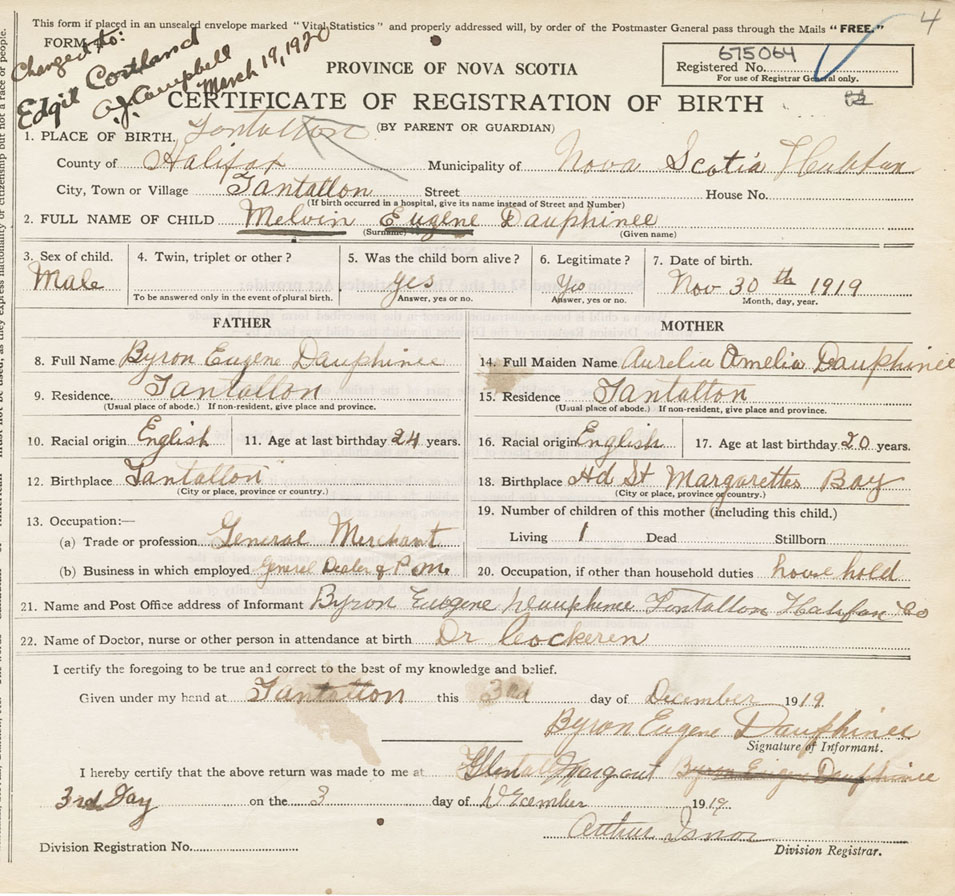 This form if placed in an unsealed envelope marked "Vital Statistics" and properly addressed will, by order of the Postmaster General pass through the Mails "FREE." 4
FORM
Changed to:
Edgil Cortland
A.J. Campbell
March 19, 1920
675064
Registered No.
For use of Registrar General only.
PROVINCE OF NOVA SCOTIA
CERTIFICATE OF REGISTRATION OF BIRTH
(BY PARENT OR GUARDIAN)
1. PLACE OF BIRTH. Tantallon
County of Halifax Municipality of Nova Scotia Halifax
City, Town or Village Tantallon Street House No.
(If birth occurred in a hospital, give its name instead of Street and Number)
2. FULL NAME OF CHILD Melvin Eugene Dauphinee
(Surname) (Given name)
3. Sex of child. 4. Twin, triplet or other? 5. Was the child born alive? 6. Legitimate? 7. Date of birth.
Male yes Yes Nov 30th 1919
To be answered only in the event of plural birth. Answer, yes or no. Answer, yes or no. Month, day, year.
FATHER MOTHER
8. Full Name Byron Eugene Dauphinee 14. Full Maiden Name Aurelia Amelia Dauphinee
9. Residence. Tantallon 15. Residence Tantallon
(Usual place of abode.) If non-resident, give place and province. (Usual place of abode.) If non-resident, give place and province.
10. Racial origin English 11. Age at last birthday 24 years. 16. Racial origin English 17. Age at last birthday 20 years.
12. Birthplace Tantallon 18. Birthplace Hd St Margarettes Bay
(City or place, province or country.) (City or place, province or country.)
13. Occupation:— 19. Number of children of this mother (including this child.)
(a) Trade or profession General Merchant Living 1 Dead Stillborn
(b) Business in which employed General Dealer & P.M. 20. Occupation, if other than household duties household
21. Name and Post Office address of Informant Byron Eugene Dauphinee Tantallon Halifax Co
22. Name of Doctor, nurse or other person in attendance at birth Dr Cockeren
I certify the foregoing to be true and correct to the best of my knowledge and belief.
Given under my hand at Tantallon this 3rd day of December 1919
Byron Eugene Dauphinee
Signature of Informant.
I hereby certify that the above return was made to me at Margaret Byron Eugene Dauphinee
3rd Day on the 3 day of December 1919.
Arthur Isnor
Division Registration No. Division Registrar.